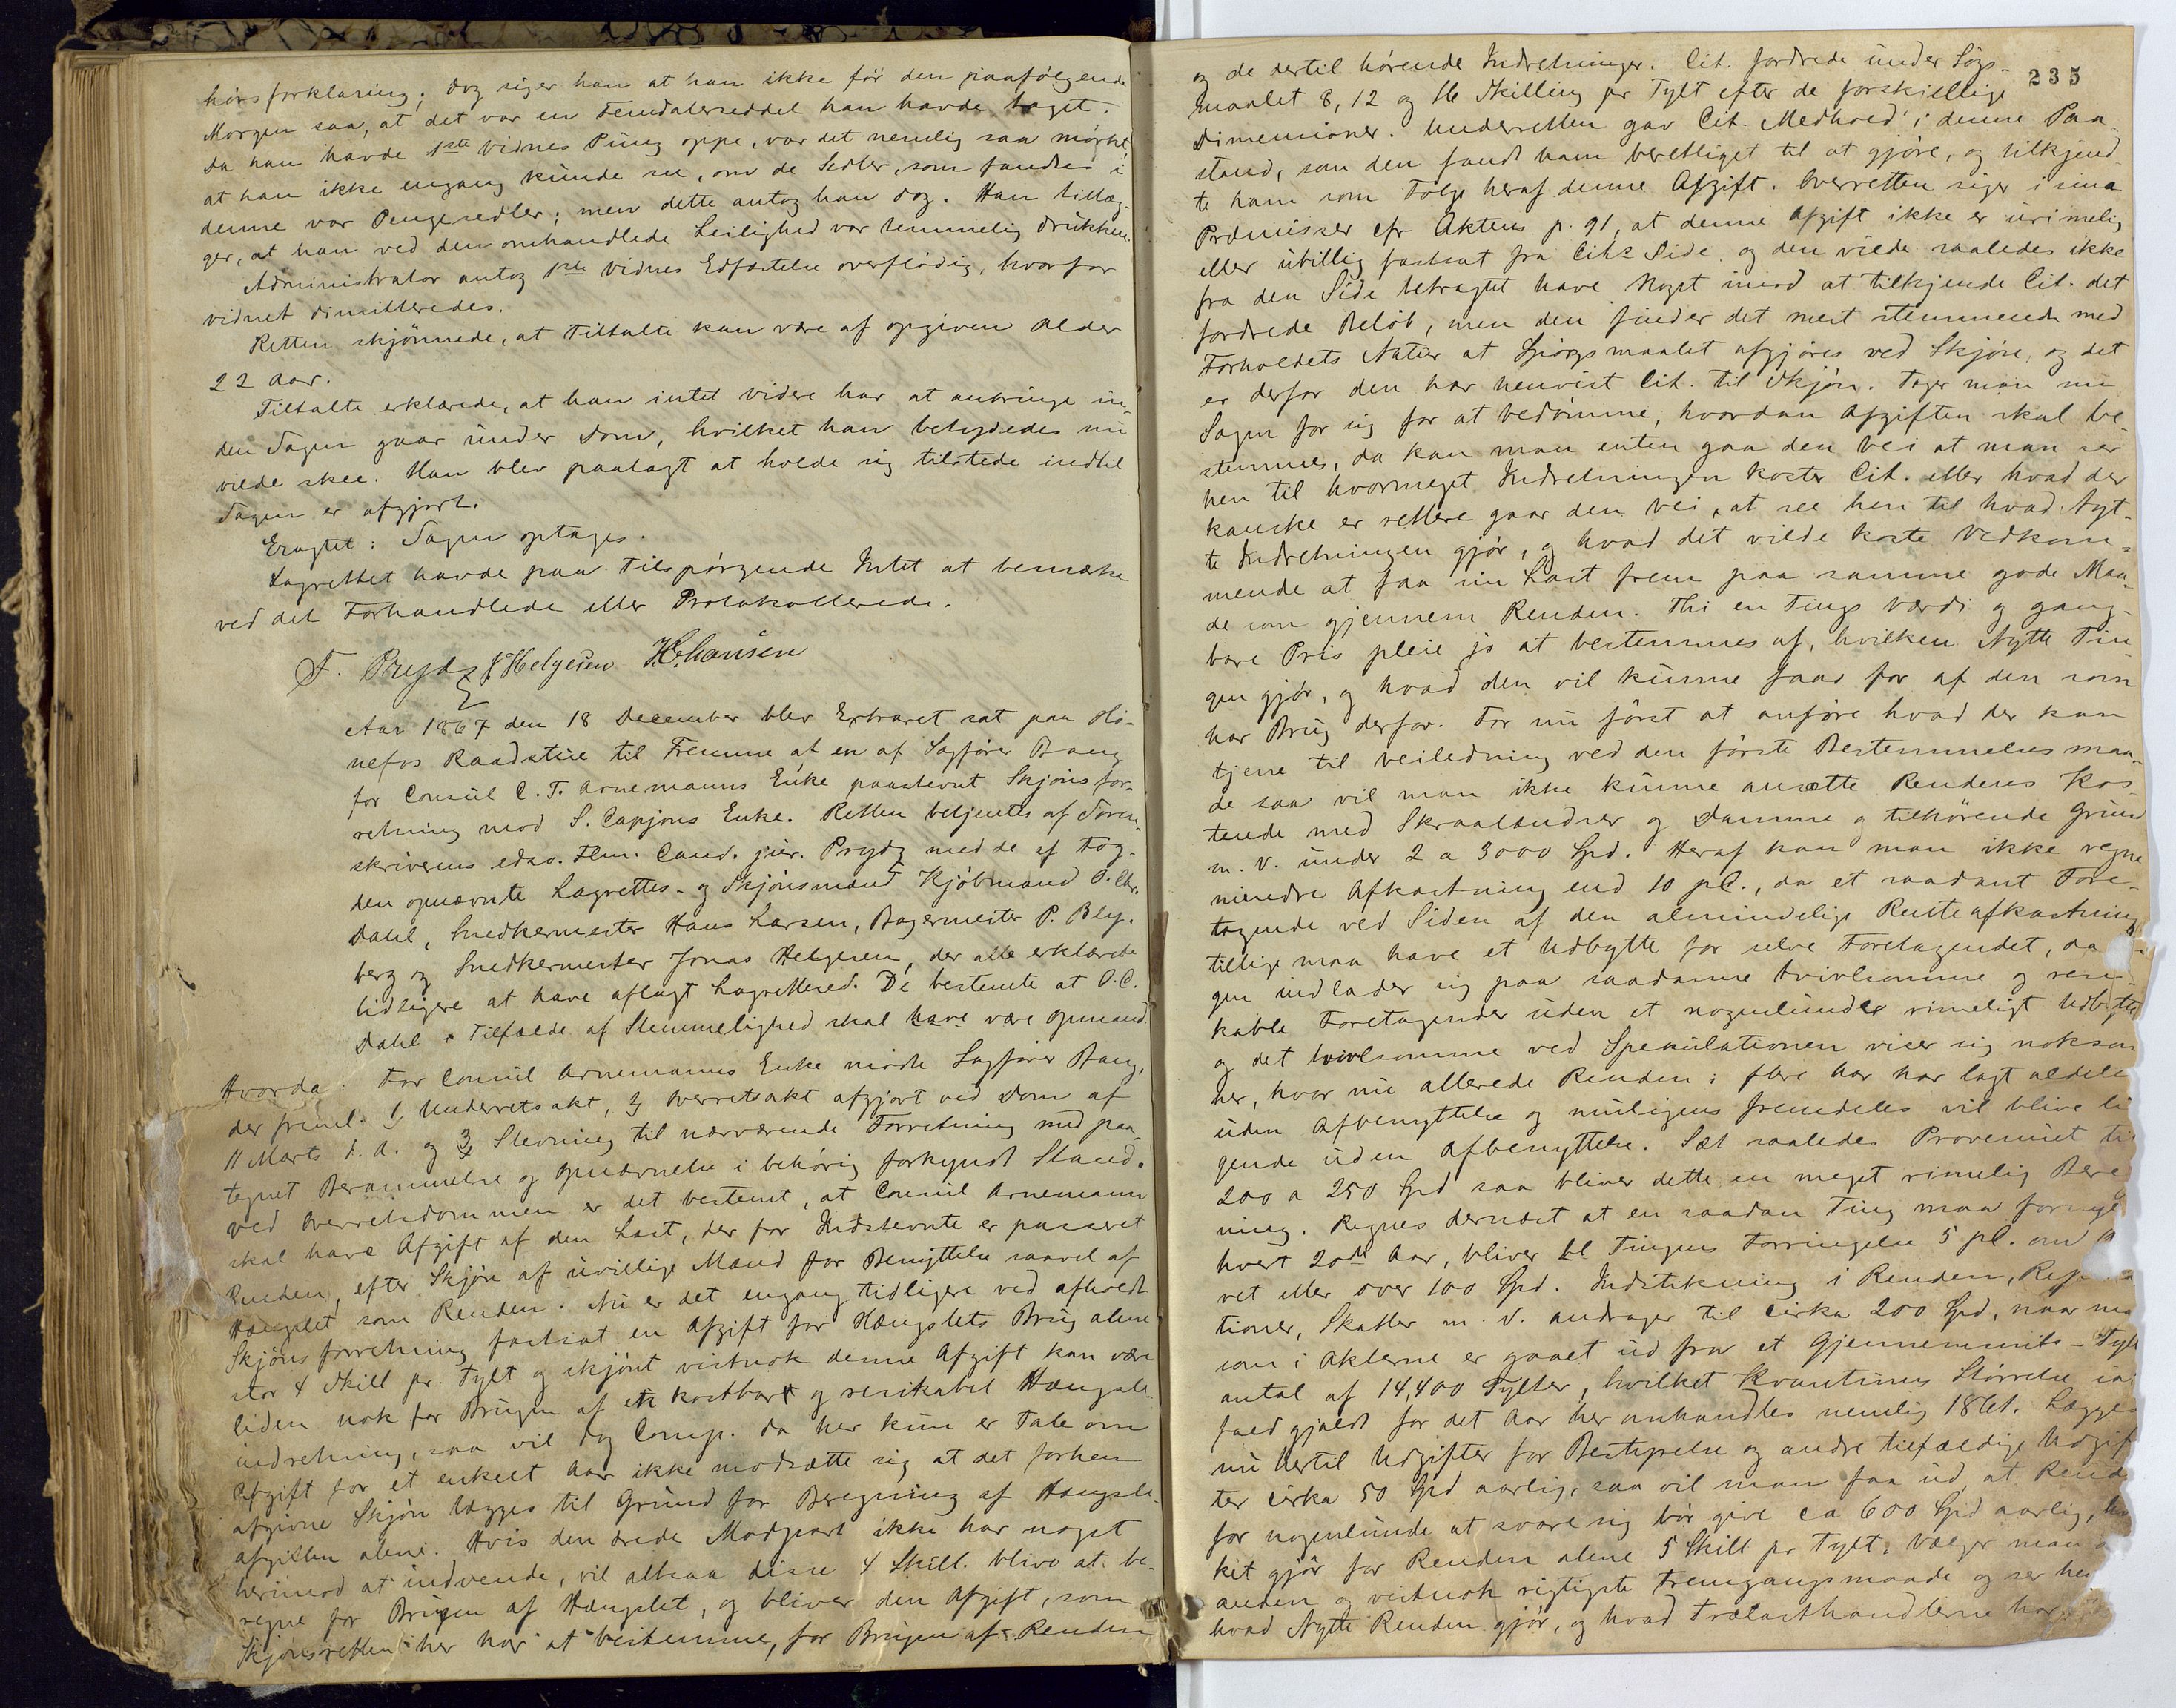 hörsforklaring; dog siger han at han ikke för den paafölgende
Morgen saa, at det var en Femdalerseddel han havde taget.
Da han havde 1ste Vidnes Pung oppe, var det nemlig saa mörkt
at han ikke engang kunde see, om de Sedler, som fandtes i
denne var Pengesedler; men dette antog han dog. Han tillæg-
ger, at han ved den omhandlede Leilighed var temmelig drukken.
Administrator antog 1ste Vidnes Edfæstelse overflödig, hvorfor
vidnet dimitteredes.
Retten skjönnede, at Tiltalte kan være af opgiven Alder
22 Aar.
Tiltalte erklærede, at han intet videre har at anbringe in-
den Sagen gaar under Dom, hvilket han betydedes nu
vilde skee. Han blev paalagt at holde sig tilstede indtil
Sagen er afgjort.
Eragtet: Sagen optages.
Lagrettet havde paa Tilspörgende Intet at bemærke
ved det Forhandlede eller Protokollerede.
F. Prydz J Helgesen H. Hansen
Aar 1867 den 18 December blev Extraret sat paa Hö-
nefos Raadstue til Fremme af en af Sagförer Bang
for Consul C. T. Arnemanns Enke paastevnt Skjönsfor-
retning mod S. Capjons Enke. Retten betjentes af Soren-
skriverens edsv. Flm. Cand. jur. Prydz med de af Fog-
den opnævnte Lagrettes- og Skjönsmænd Kjöbmand O. Chr.
Dahl, Snedkermester Hans Larsen, Bagermester P. Bly-
berg og Snedkermester Jonas Helgesen, der alle erklærede
tidligere at have aflagt Lagretteed. De bestemte at O. C.
Dahl i Tilfælde af Stemmelighed skal have være Opmand.
Hvorda: For Consul Arnemanns Enke mödte Sagförer Bang,
der freml. 1, Underretsakt, 2, Overretsakt afgjort ved Dom af
11 Marts d. A. og 3, Stevning til nærværende Forretning med paa-
tegnet Berammelse og Opnævnelse i behörig forkyndt Stand.
Ved Overretsdommen er det bestemt, at Consul Arnemann
skal have Afgift af den Last, der for Indstevnte er passeret
Renden, efter Skjön af uvillige Mænd for Benyttelse saavel af
Hængslet som Renden. Nu er det engang tidligere ved afholdt
Skjönsforretning fastsat en Afgift for Hængslets Brug alene
stor 4 Skill pr. Tylt og skjönt vistnok denne Afgift kan være
liden nok for Brugen af et kostbart og resikabel Hængsle-
indretning, saa vil dog Comp. da her kun er Tale om
Afgift for et enkelt Aar ikke modsætte sig at det forhen
afgivne Skjön lægges til Grund for Beregning af Hængsle-
afgiften alene. Hvis den ærede Modpart ikke har noget
herimod at indvende, vil altsaa disse 4 Skill. blive at be-
regne for Brugen af Hængslet, og bliver den Afgift, som
Skjönsretten her har at bestemme, for Brugen af Renden
235
og de dertil hörende Indretninger. Cit. fordrede under Sögs-
maalet 8, 12 og 16 Skilling pr Tylt efter de forskjellige
Dimensioner. Underretten gav Cit. Medhold i denne Paa-
stand, som den fandt ham berettiget til at gjöre, og tilkjend-
te ham som Fölge heraf denne Afgift. Overretten siger i sine
Præmisser cfr Aktens p. 91, at denne Afgift ikke er urimelig
eller ubillig fastsat fra Cits Side, og den vilde saaledes ikke
fra den Side betragtet have noget imod at tilkjende Cit. det
fordrede Belöb, men den finder det mest stemmende med
Forholdets Natur at Spörgsmaalet afgjöres ved Skjön, og det
er derfor den har henvist Cit. til Skjön. Tager man nu
Sagen for sig for at bedömme, hvordan Afgiften skal be-
stemmes, da kan man enten gaa den Vei at man ser
hen til hvormeget Indretningen koster Cit. eller hvad der
kanske er rettere gaar den Vei, at see hen til hvad Nyt-
te Indretningen gjör, og hvad det vilde koste Vedkom-
mende at faa sin Last frem paa samme gode Maa-
de som gjennem Renden. Thi en Tings Værdi og gang-
bare Pris pleie jo at bestemmes af, hvilken Nytte Tin-
gen gjör, og hvad den vil kunne faaes for af den som
har Brug derfor. For nu först at anföre hvad der kan
tjene til Veiledning ved den förste Bestemmelsesmaa-
de saa vil man ikke kunne ansætte Rendens Kos-
tende med Skraalændser og Damme og tilhörende Grund
m. v. under 2 a 3000 Spd. Heraf kan man ikke regne
mindre Afkastning end 10 pC., da et saadant Fore-
tagende ved Siden af den almindelige Renteafkastning
tillige maa have et Udbytte for selve Foretagendet, da
gen indlader sig paa saadanne tvivlsomme og resi-
kable Foretagender uden et nogenlunde rimeligt Udbytte
og det tvivlsomme ved Spekulationen viser sig noksom
her, hvor nu allerede Renden i flere Aar har lagt aldeles
uden Afbenyttelse og muligens fremdeles vil blive li-
gende uden Afbenyttelse. Sæt saaledes Provenuet til
200 a 250 Spd saa bliver dette en meget rimelig Bereg
ning. Regnes dernæst at en saadan Ting maa fornyes
hvert 20de Aar, bliver til Tingens Forringelse 5 pC. om
ret eller over 100 Spd. Indstikning i Renden,
tioner, Skatter m. v. andrager til cirka 200 Spd, naar man
som i Akterne er gaaet ud fra et Gjennemsnits-Tylt
antal af 14,400 Tylter, hvilket Kvantums Störrelse
fald gjældt for det Aar her omhandles nemlig 1861. Lægges
nu hertil Udgifter for Bestyrelse og andre tilfældige Udgif
ter cirka 50 Spd aarlig, saa vil man faa ud, at Renden
for nogenlunde at svare sig bör give ca 600 Spd aarlig,
ket gjör for Renden alene 5 Skill pr Tylt. Vælger man
anden og vistnok rigtigste Fremgangsmaade og ser hen
hvad Nytte Renden gjör, og hvad Trælasthandlerne har